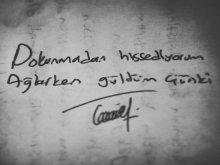 Dokunmadan hissediyorum
Ağlarken güldüm çünkü